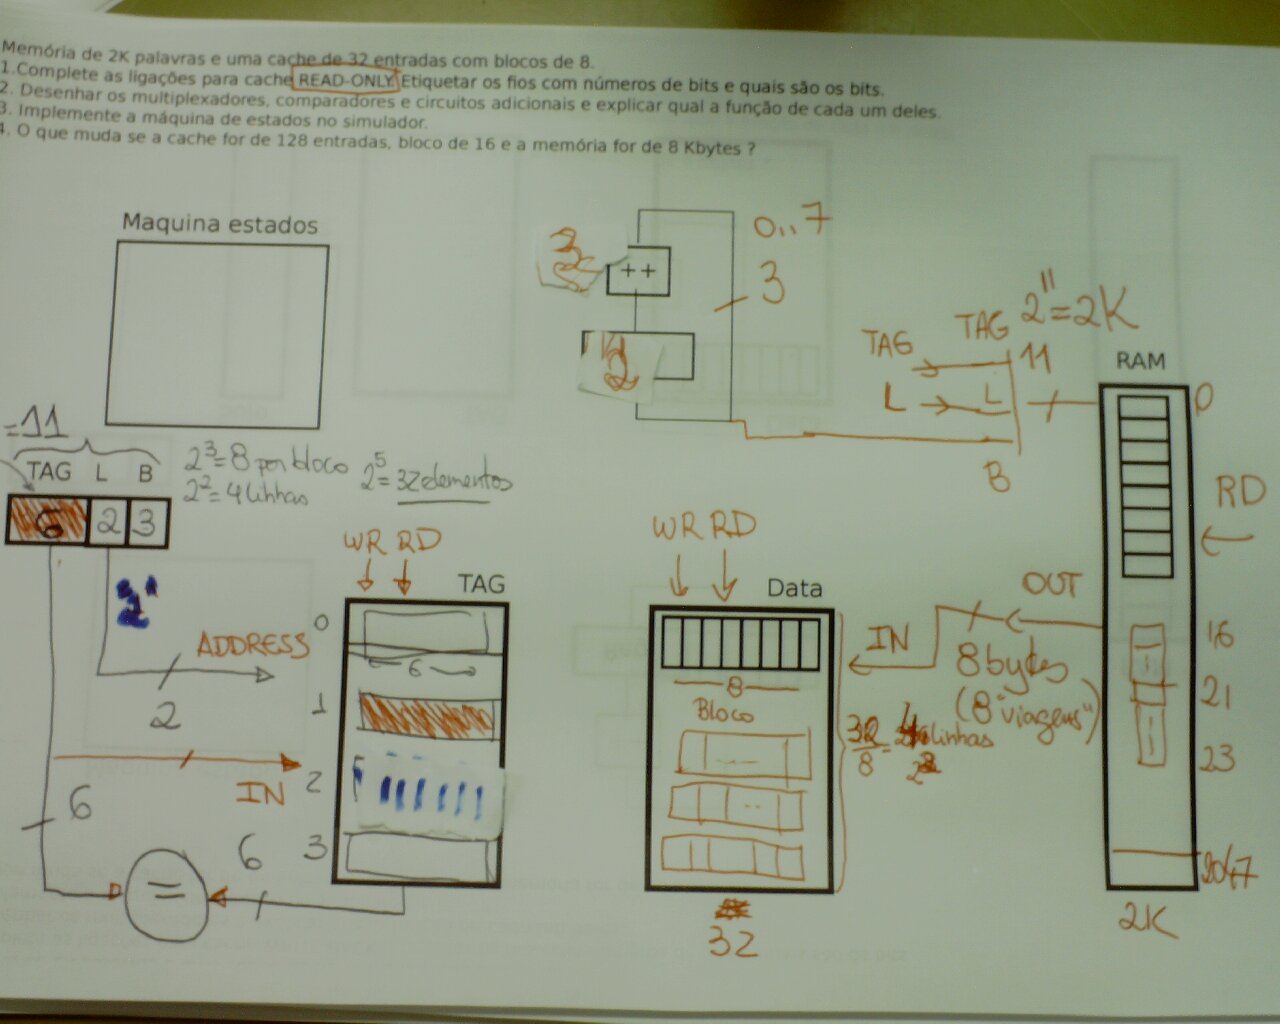 Memória de 2K palavras e uma cache de 32 entradas com blocos de 8.
1.Complete as ligações para cache READ-ONLY. Etiquetar os fios com números de bits e quais são os bits.
2. Desenhar os multiplexadores, comparadores e circuitos adicionais e explicar qual a função de cada um deles.
3. Implemente a máquina de estados no simulador.
4. O que muda se a cache for de 128 entradas, bloco de 16 e a memória for de 8 Kbytes ?
Maquina estados
++
0..7
3
TAG
TAG 2¹¹=2K
11
L
L
B
RAM
0
RD
=11
TAG L B
6 2 3
2³=8 por bloco
2²=4 linhas
2⁵=32 elementos
2
ADDRESS
2
IN
6
6
=
WR RD
TAG
0
6
1
2
3
WR RD
Data
8
Bloco
32
IN
OUT
8 bytes
(8 "viagens")
32/8= 4 linhas
16
21
23
2047
2K